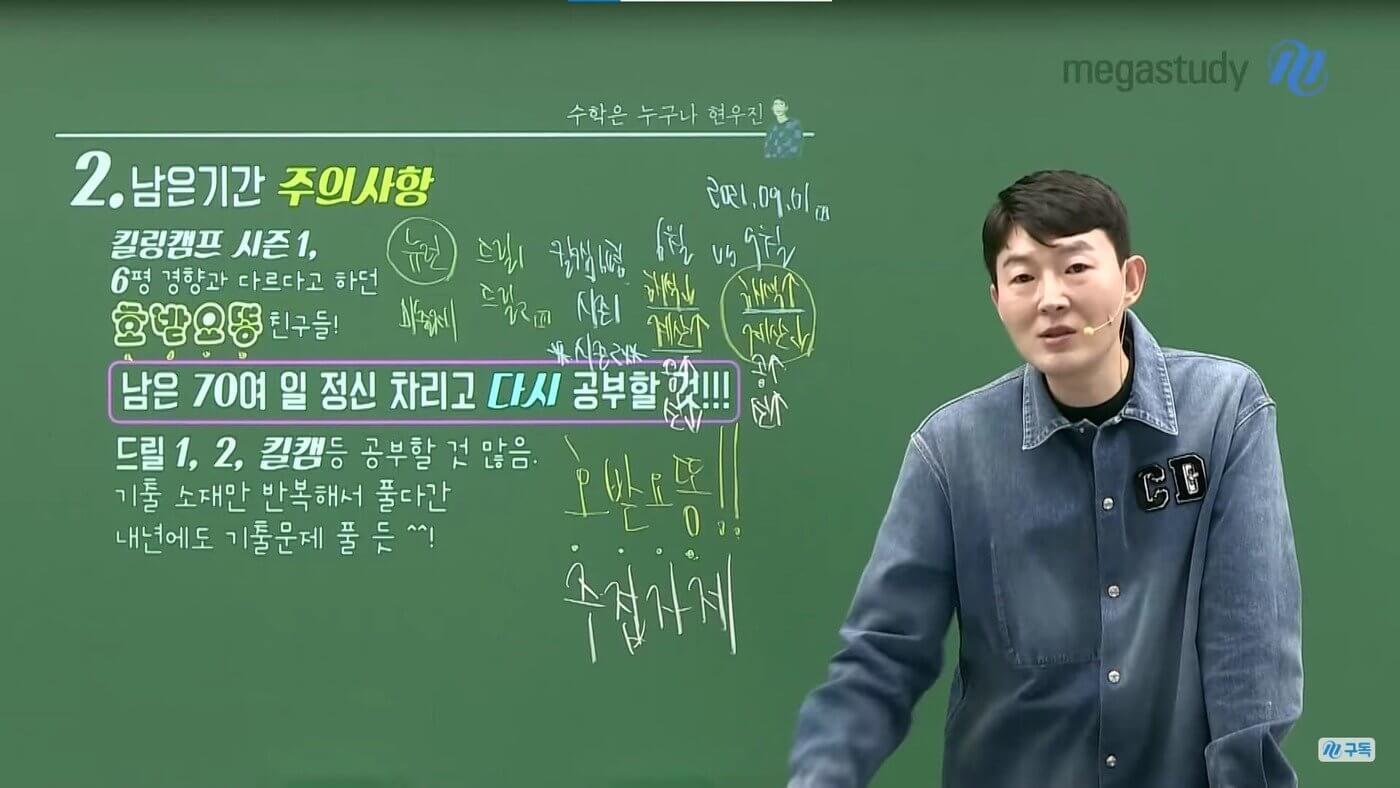 megastudy
수학은 누구나 현우진
2. 남은기간 주의사항
2021.09.01
킬링캠프 시즌1,
6평 경향과 다르다고 하던
호발요뚱 친구들!
뉴런 드릴1 6월 vs 9월
드릴2 시즌1 해석↓ 해석↑
계산↑ 계산↓
*시즌2*
공↑ 공↑
남은 70여 일 정신 차리고 다시 공부할 것!!!
드릴 1, 2, 킬캠등 공부할 것 많음.
기출 소재만 반복해서 풀다간
내년에도 기출문제 풀 듯 ^^!
호발요뚱!!
주접자제
CD
구독